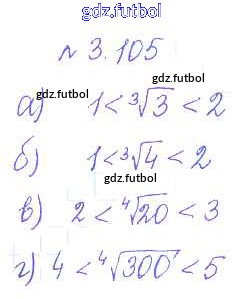 gdz.futbol
№ 3.105
gdz.futbol
а) 1 < ³√3 < 2
gdz.futbol
б) 1 < ³√4 < 2
gdz.futbol
в) 2 < ⁴√20 < 3
gdz.futbol
г) 4 < ⁴√300 < 5